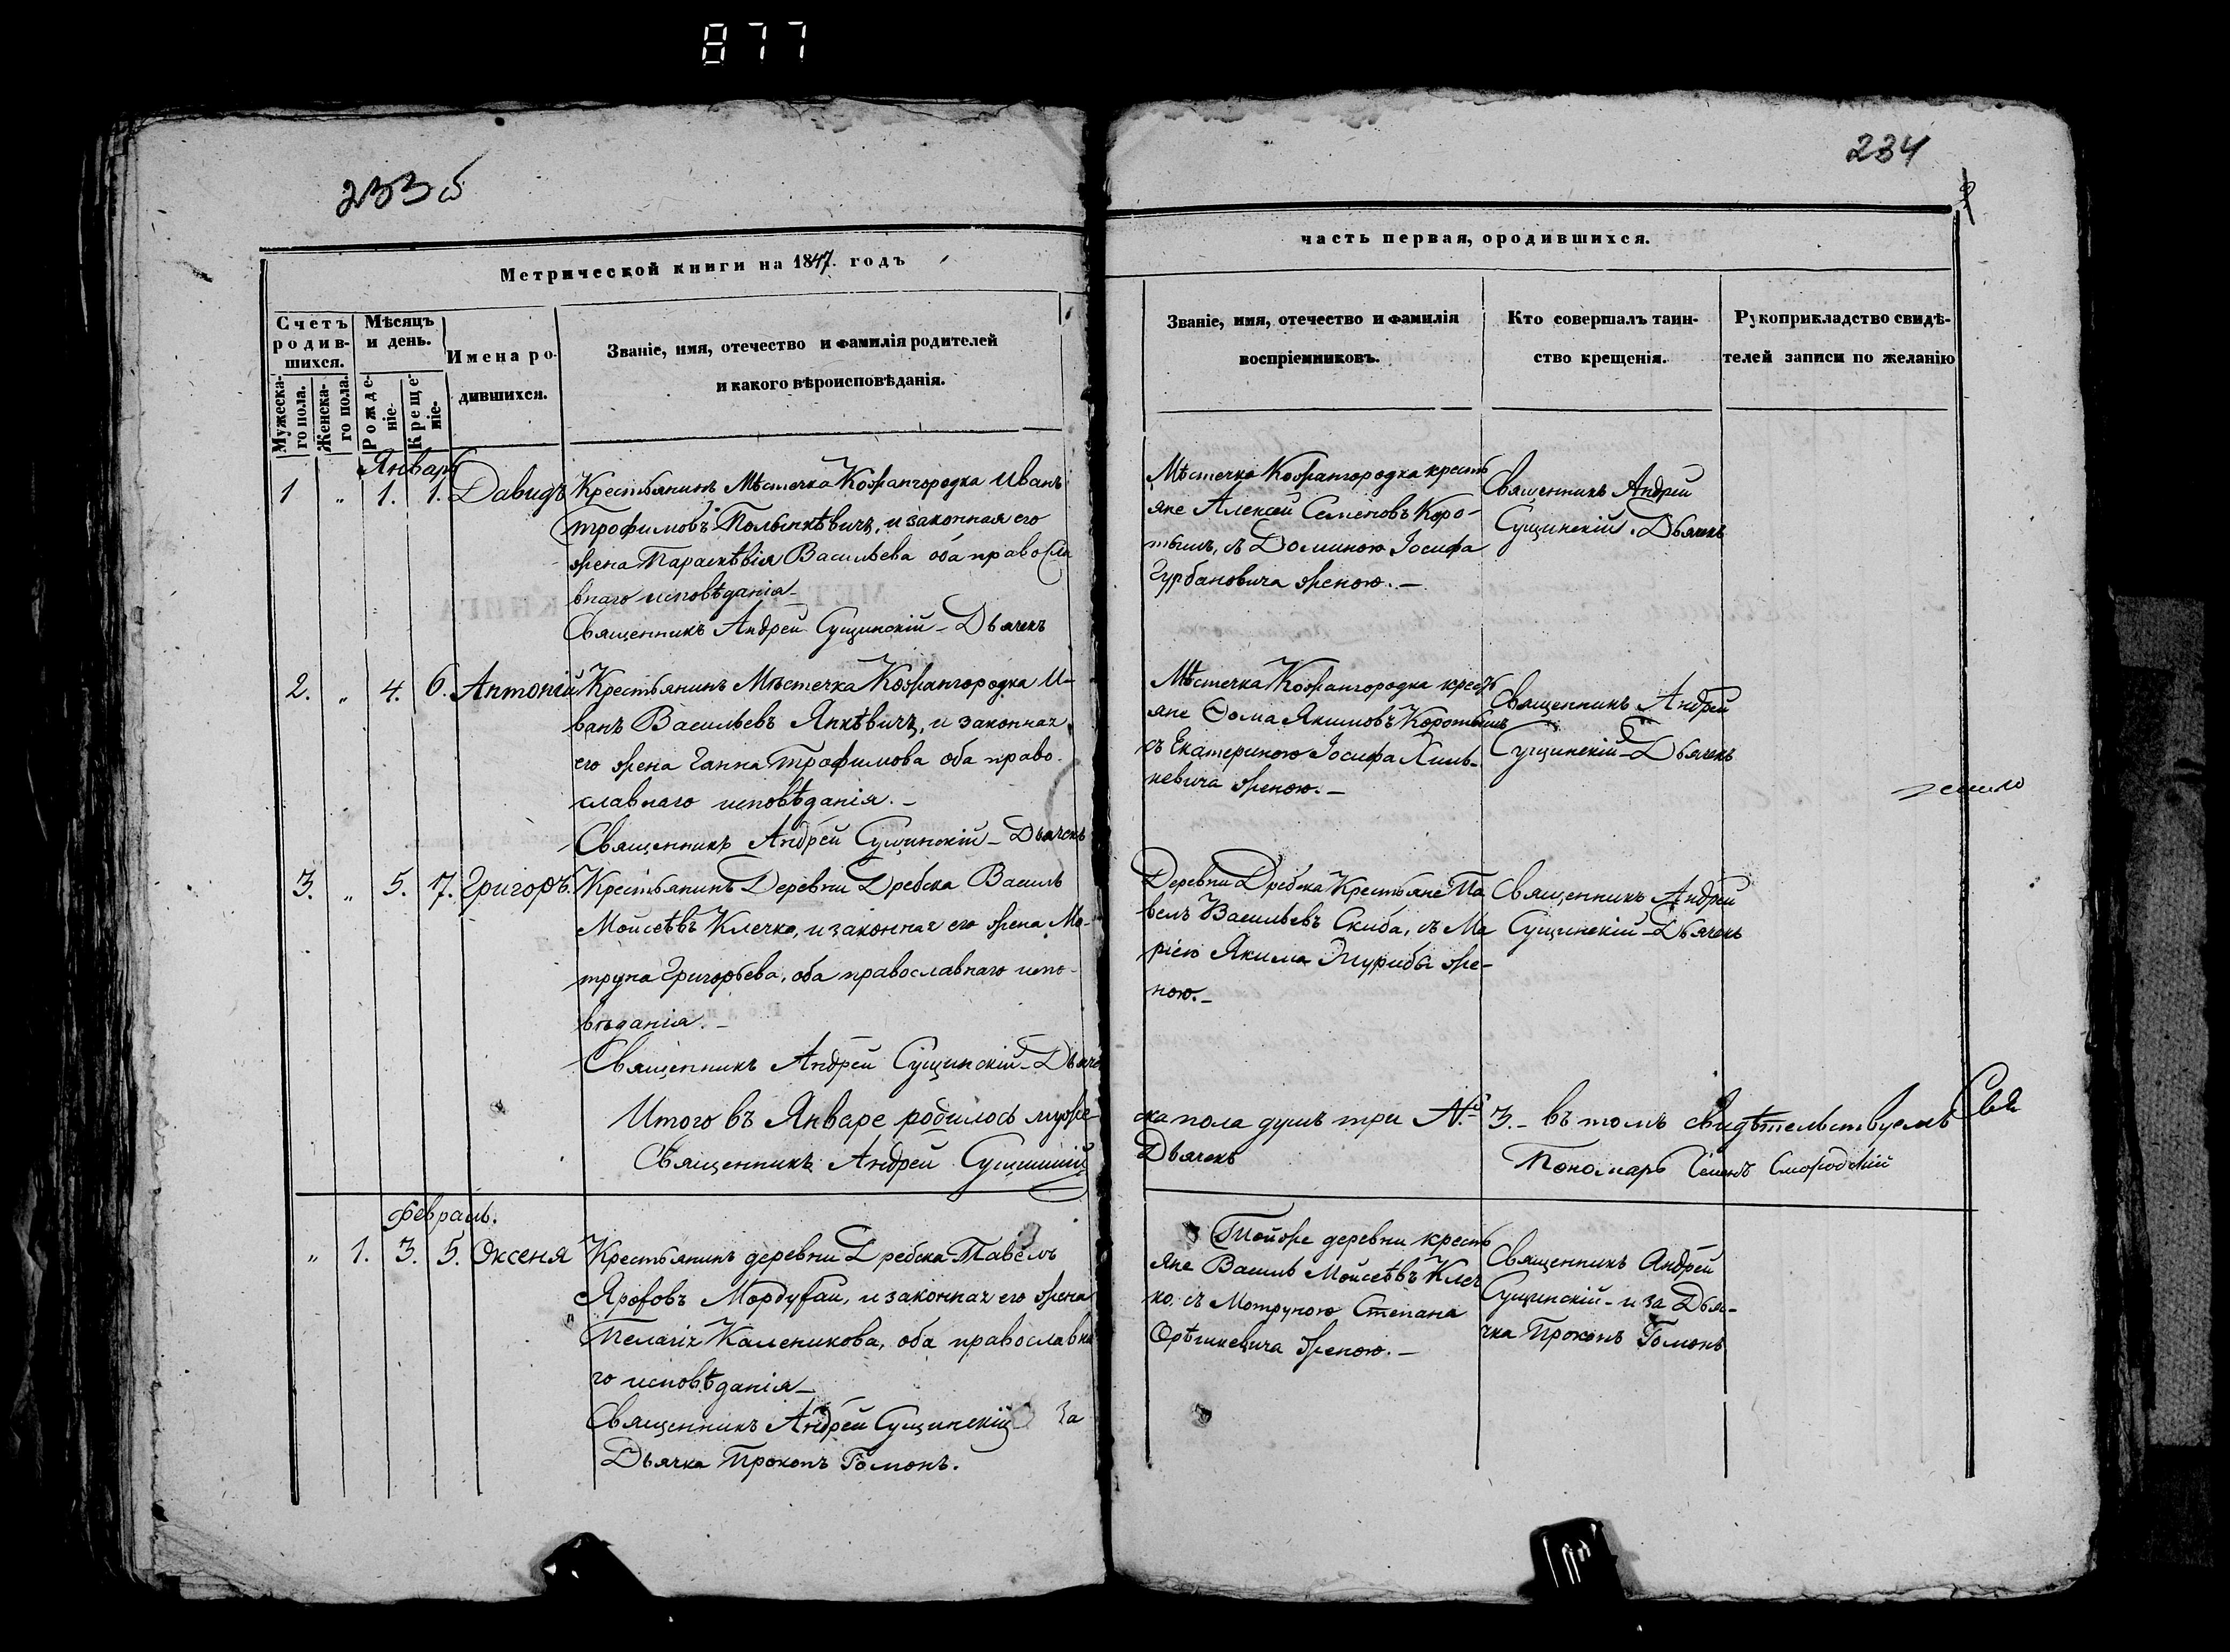 877
233 б
234
Метрической книги на 1847. годъ
часть первая, ородившихся.
Счетъ родив-шихся.
Мужеска-го пола.
Женска-го пола.
Мѣсяцъ и день.
Рожде-ніе.
Креще-ніе.
Имена ро-
дившихся.
Званіе, имя, отечество и фамилія родителей
и какого вѣроисповѣданія.
Званіе, имя, отечество и фамилія
воспріемниковъ.
Кто совершалъ таин-
ство крещенія.
Рукоприкладство свидѣ-
телей записи по желанію
Январь
1 „ 1. 1. Давидъ
Крестьянинъ Мѣстечка Кожангородка Иванъ
Трофимовъ Полынкѣвичъ, и законная его
жена Параскѣвія Васильева оба правосла
внаго исповѣданія
Священникъ Андрей Сущинскій - Дьячекъ
Мѣстечка Кожангородка кресть
яне Алексѣй Семеновъ Коро-
тышъ, съ Доминою Іосифа
Гурбановича женою. —
Священникъ Андрей
Сущинскій. Дьячекъ
2. „ 4. 6. Антоній
Крестьянинъ Мѣстечка Кожангородка И-
ванъ Васильевъ Япкѣвичъ, и законная
его жена Ганна Трофимова оба право-
славнаго исповѣданія. -
Священникъ Андрей Сущинскій - Дьячекъ
Мѣстечка Кожангородка кресть
яне Ѳома Якимовъ Коротышъ
съ Екатериною Іосифа Хиль-
кевича женою. —
Священникъ Андрей
Сущинскій - Дьячекъ
3. „ 5. 17. Григоръ.
Крестьянинъ Деревни Дребска Василь
Мойсѣевъ Клечко, и законная его жена Мо-
труна Григорьева, оба православнаго испо-
вѣданія. -
Священникъ Андрей Сущинскій - Дьяче
Деревни Дребска Крестьяне Па
велъ Васильевъ Скиба, съ Ма
ріею Якима Жгурибы же-
ною. -
Священникъ Андрей
Сущинскій - Дьячекъ
Итого въ Январе родилось муже
ска пола душъ три № 3. - въ томъ свидѣтельствуемъ Свя
Священникъ Андрей
Дьячекъ
Пономарь Семенъ Смородскій
Февраль.
„ 1. 3. 5. Оксеня
Крестьянинъ деревни Дребска Павелъ
Мордухай, и законная его жена
Пелагія Каленикова, оба православна
го исповѣданія -
Священникъ Андрей Сущинскій За
Дьячка Прокопъ Гомонъ.
Тойже деревни кресть
яне Василь Мойсѣевъ Клеч
ко. съ Мотруною Степана
Орѣшкевича женою. —
Священникъ Андрей
Сущинскій - и за Дья-
чка Прокопъ Гомонъ